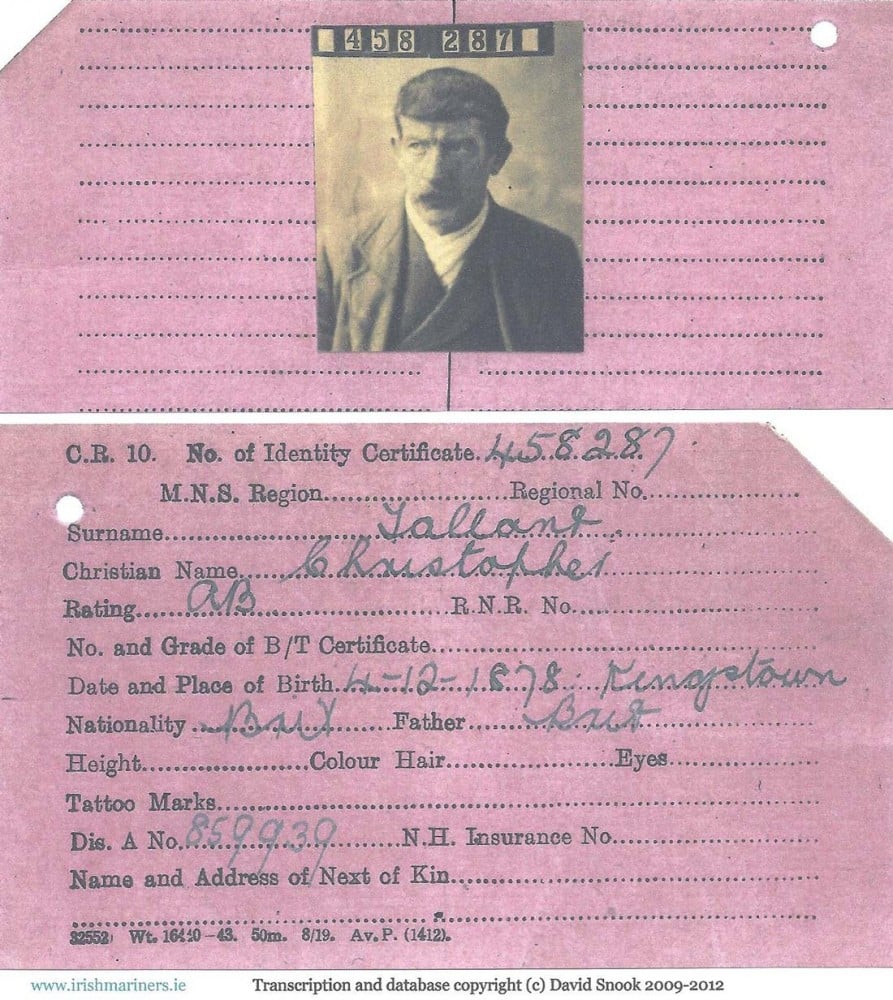 458 287
C.R. 10. No. of Identity Certificate. 458287
M.N.S. Region.......................Regional No....................
Surname....................Tallant....................
Christian Name......Christopher....................
Rating.....AB....................R.N.R. No....................
No. and Grade of B/T Certificate....................
Date and Place of Birth. 4-12-1878. Kingstown
Nationality ..Brit....................Father.......Brit....................
Height....................Colour Hair....................Eyes....................
Tattoo Marks....................
Dis. A No. 859939.........N.H. Insurance No....................
Name and Address of Next of Kin....................
32552 Wt. 16440-43. 50m. 8/19. Av.P. (1412).
www.irishmariners.ie Transcription and database copyright (c) David Snook 2009-2012